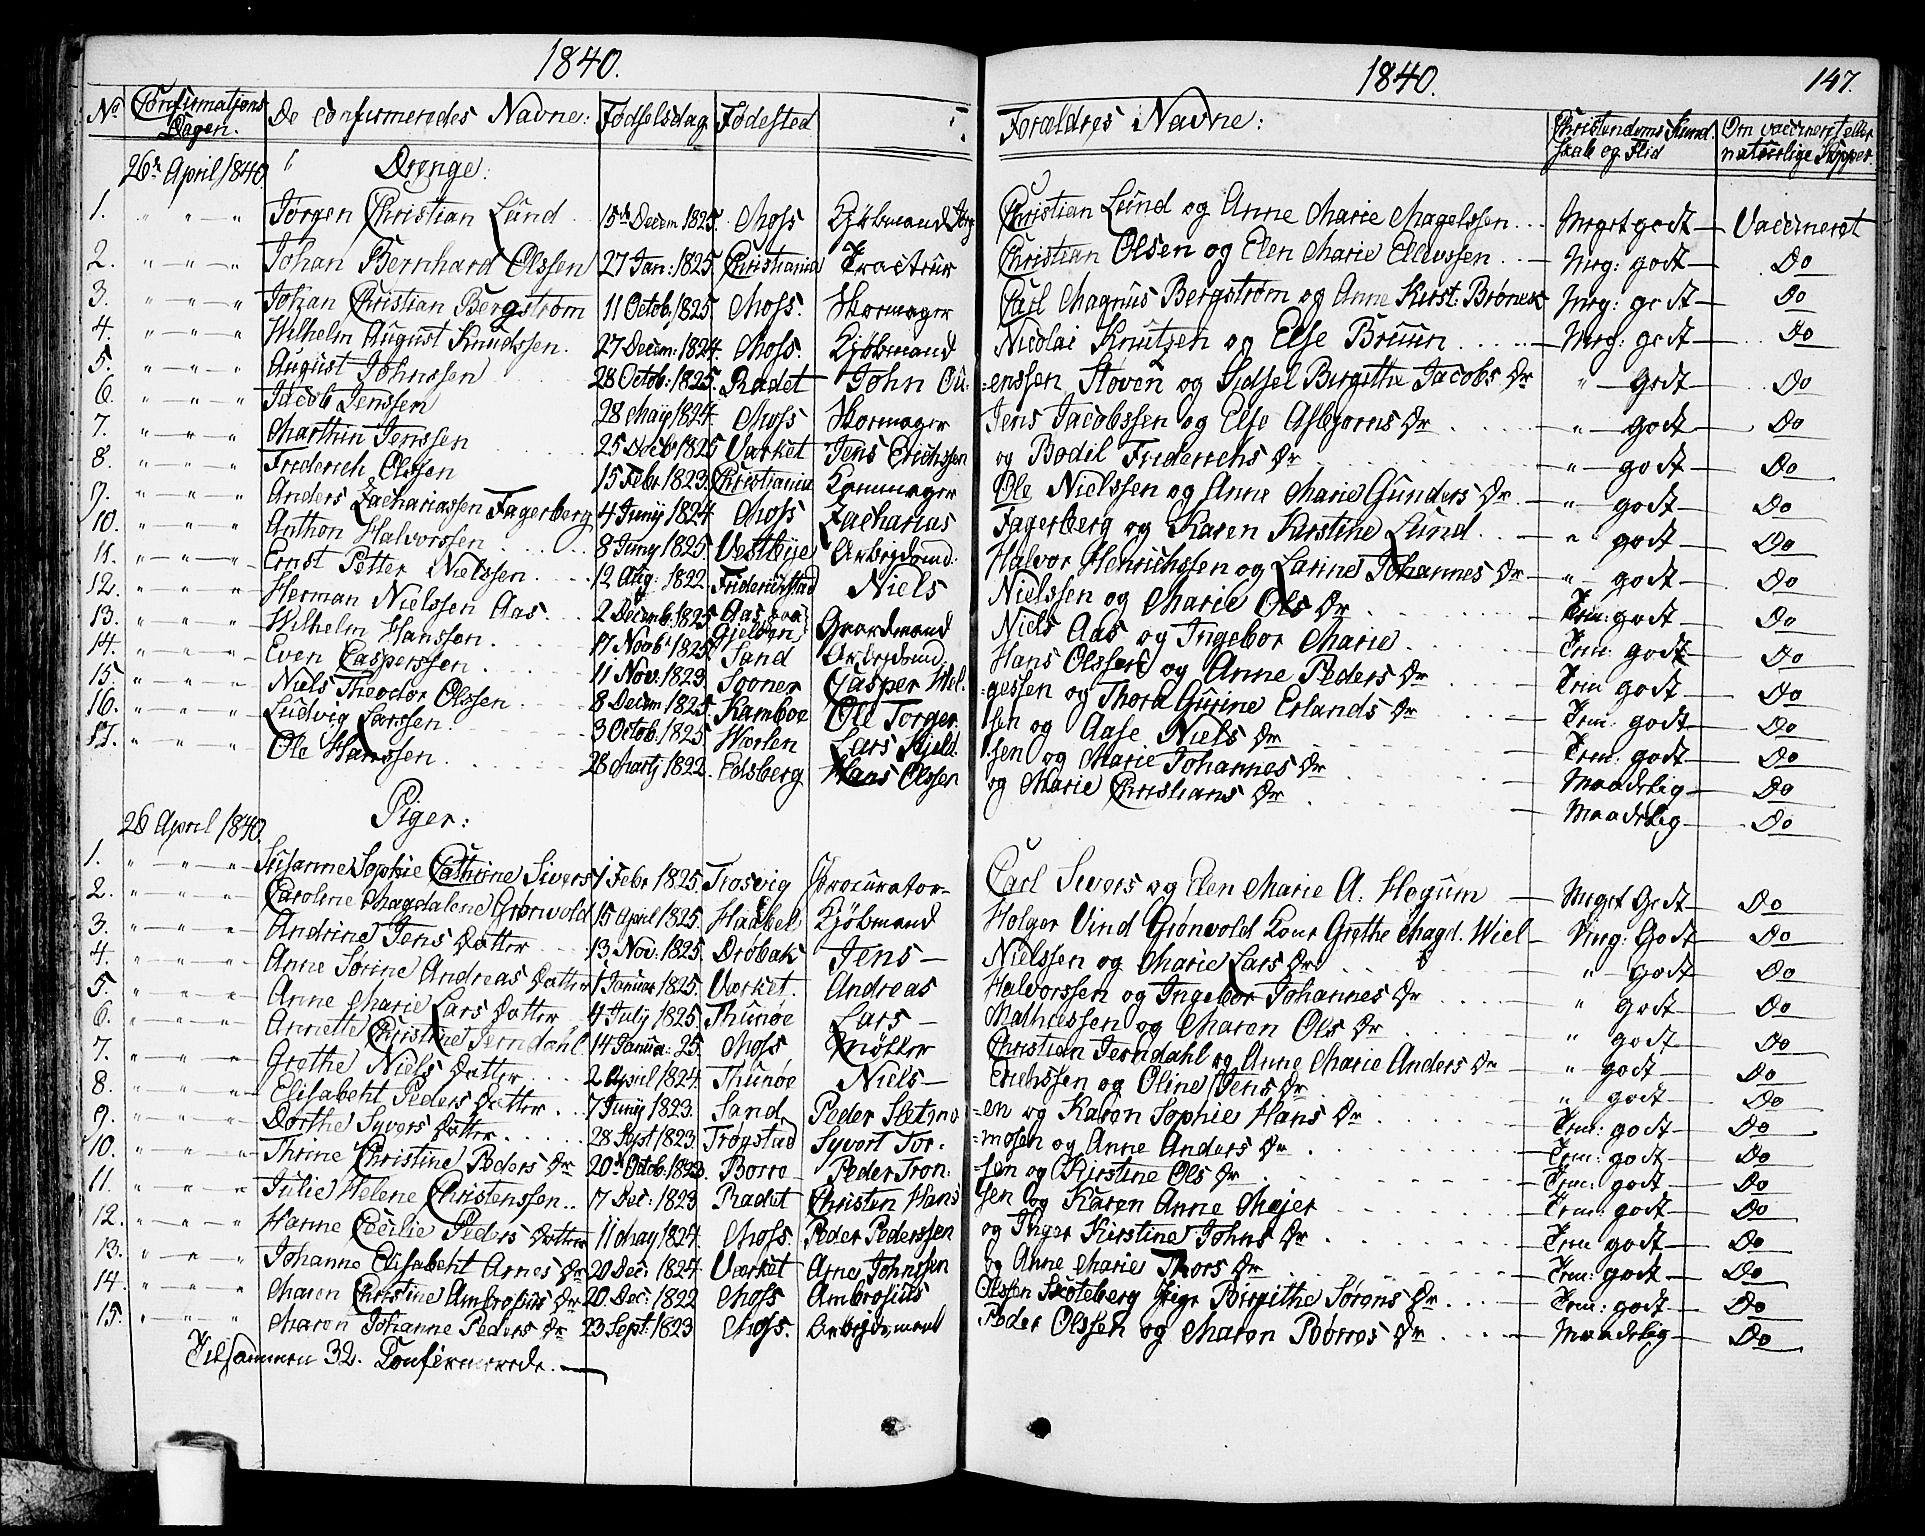 1840.
1840.
147.
No Confirmations Dagen. De confirmeredes Navne: Fødselsdag Fødested Forældres Navne: Christendoms Kundskab og Flid Om vaccineret eller naturlige Kopper.
26de April 1840 Drenge:
1. " — " — " Jørgen Christian Lund 15de Decem 1825. Moss Kjøbmand Jørg Christian Lund og Anne Marie Magelssen Meget godt — Vaccineret
2. " — " — " Johan Bernhard Olssen 27 Jan: 1825. Christiania Tracteur Christian Olsen og Elen Marie Ellevssen Meg: godt — Do
3. " — " — " Johan Christian Bergstrøm 11 Octob. 1825. Moss. Skomager Carl Magnus Bergstrøm og Anne Kirst: Meg: godt — Do
4. " — " — " Wilhelm August Knudssen. 27 Decem: 1824. Moss. Kjøbmand Nicolai Knutzen og Else Bruun Meg: godt — Do
5. " — " — " August Johnssen 28 Octob: 1825. Radet John Ou- =enssen Stoven og Sidsel Birgithe Jacobs Dr " — godt — Do
6. " — " — " Jacob Jenssen 28 May 1824. Moss Skomager Jens Jacobssen og Else Asbjørns Dr " — godt — Do
7. " — " — " Marthin Jenssen 25 Decb 1825 Værket Jens Erichssen og Bodil Friderichs Dr " — godt — Do
8. " — " — " Friderich Olssen 15 Febr. 1823. Christiania Kammager Ole Nielssen og Anne Marie Gunders Dr " godt — Do
9. " — " — " Anders Zachariassen Fagerberg 4 Juny 1824 Moss Zacharias Fagerberg og Karen Kirstine Lund " godt — Do
10. " — " — " Anthon Halvorssen 8 Juny 1825. Vestbye Arbejdsmd. Halvor Henrichssen og Larine Johannes Dr — " — godt — Do
11. " — " — " Ernst Petter Nielssen 12 Aug: 1822. Friderichstad Niels Nielssen og Marie Ols Dr Tem: godt — Do
12. " — " — " Herman Nielssen Aas 2 Decemb. 1825. Aas Gaardmand Niels Aas og Ingebor Marie Tem: godt Do
13. " — " — " Wilhelm Hanssen. 17 Novb 1825. Gjelden Arbejdsmd Hans Olssen og Anne Peders Dr Tem godt — Do
14. " — " — " Even Casperssen 11 Nov: 1823 Sand Casper Hel- =gessen og Thora Gurine Erlands Dr Tem: godt — Do
15. " — " — " Niels Theodor Olssen 8 Decem 1825. Sooner Ole Torger sen og Aase Niels Dr Tem: godt — Do
16. " — " — " Ludvig Larssen. 3 Octob. 1825. Kamboe Lars Kjeld sen og Marie Johannes Dr Maadelig — Do
17. " " " Ole Hanssen. 28 Martj 1822. Edsberg Hans Olssen og Marie Christians Dr Maadelig — Do
26 April 1840. Piger:
1. " — " — " Susanne Sophie Cathrine Sivers 1 Febr 1825. Trosvig Procurator Carl Sivers og Elen Marie A. Hegum Meget Godt — Do
2. " — " — " Caroline Magdalene Grønvold 15 April 1825. Haabel Kjøbmand Holger Vind Grønvold Kone Grethe Magd. Wiel — Meg: Godt Do
3. " — " — " Andrine Jens Datter 13 Nov: 1825. Drøbak Jens — Nielssen og Marie Lars Dr " — godt Do
4. " — " — " Anne Sørine Andreas Datter 1 Januar 1825. Værket. Andreas Halvorssen og Ingebor Johannes Dr " godt — Do
5. " " " Anne Marie Lars Datter 4 July 1825. Thunøe Lars — Mathiessen og Maren Ols Dr " godt — Do
6. " " " Annette Christine Jerndahl 14 Janua: 25. Moss Møller Christian Jerndahl og Anne Marie Anders Dr — " godt — Do
7. " — " — " Grethe Niels Datter 2 April 1824. Thunøe Niels — Erichssen og Oline Jens Dr " godt — Do
8. " — " — " Elisabeht Peders Datter 7 Juny 1823. Sand Peder =en og Karen Sophie Hans Dr Tem: godt — Do
9. " — " — " Dorthe Syvers Datter 28 Sept 1823. Trøgstad Syvert Tor- =mosen og Anne Anders Dr Tem: godt — Do
10. " — " — " Thrine Christine Peders Dr 20de Octob. 1823. Borre Peder Tron- =sen og Kirstine Ols Dr Tem: godt — Do
11. " — " — " Julie Helene Christenssen 17 Dec: 1823 Radet Christen Hans sen og Karen Anne Mejer Tem: godt — Do
12. " — " — " Hanne Cecilie Peders Datter 11 May 1824. Moss. Peder Pederssen og Inger Kirstine Johns Dr Tem godt — Do
13. " — " — " Johanne Elisabeht Arnes Dr 20 Dec: 1824 Værket Arne Johnssen og Anne Marie Thors Dr Tem: godt — Do
14. " " " Maren Christine Ambrosius Dr 20 Dec: 1822 Moss Ambrosius Olssen Skoteberg Birgithe Sørens Dr Tem: godt — Do
15. " " " Maren Johanne Peders Dr 23 Sept: 1823 Moss. Arbejdsmand Peder Olssen og Maren Børres Dr Maadelig — Do
Tilsammen 32. Confirmerede. —